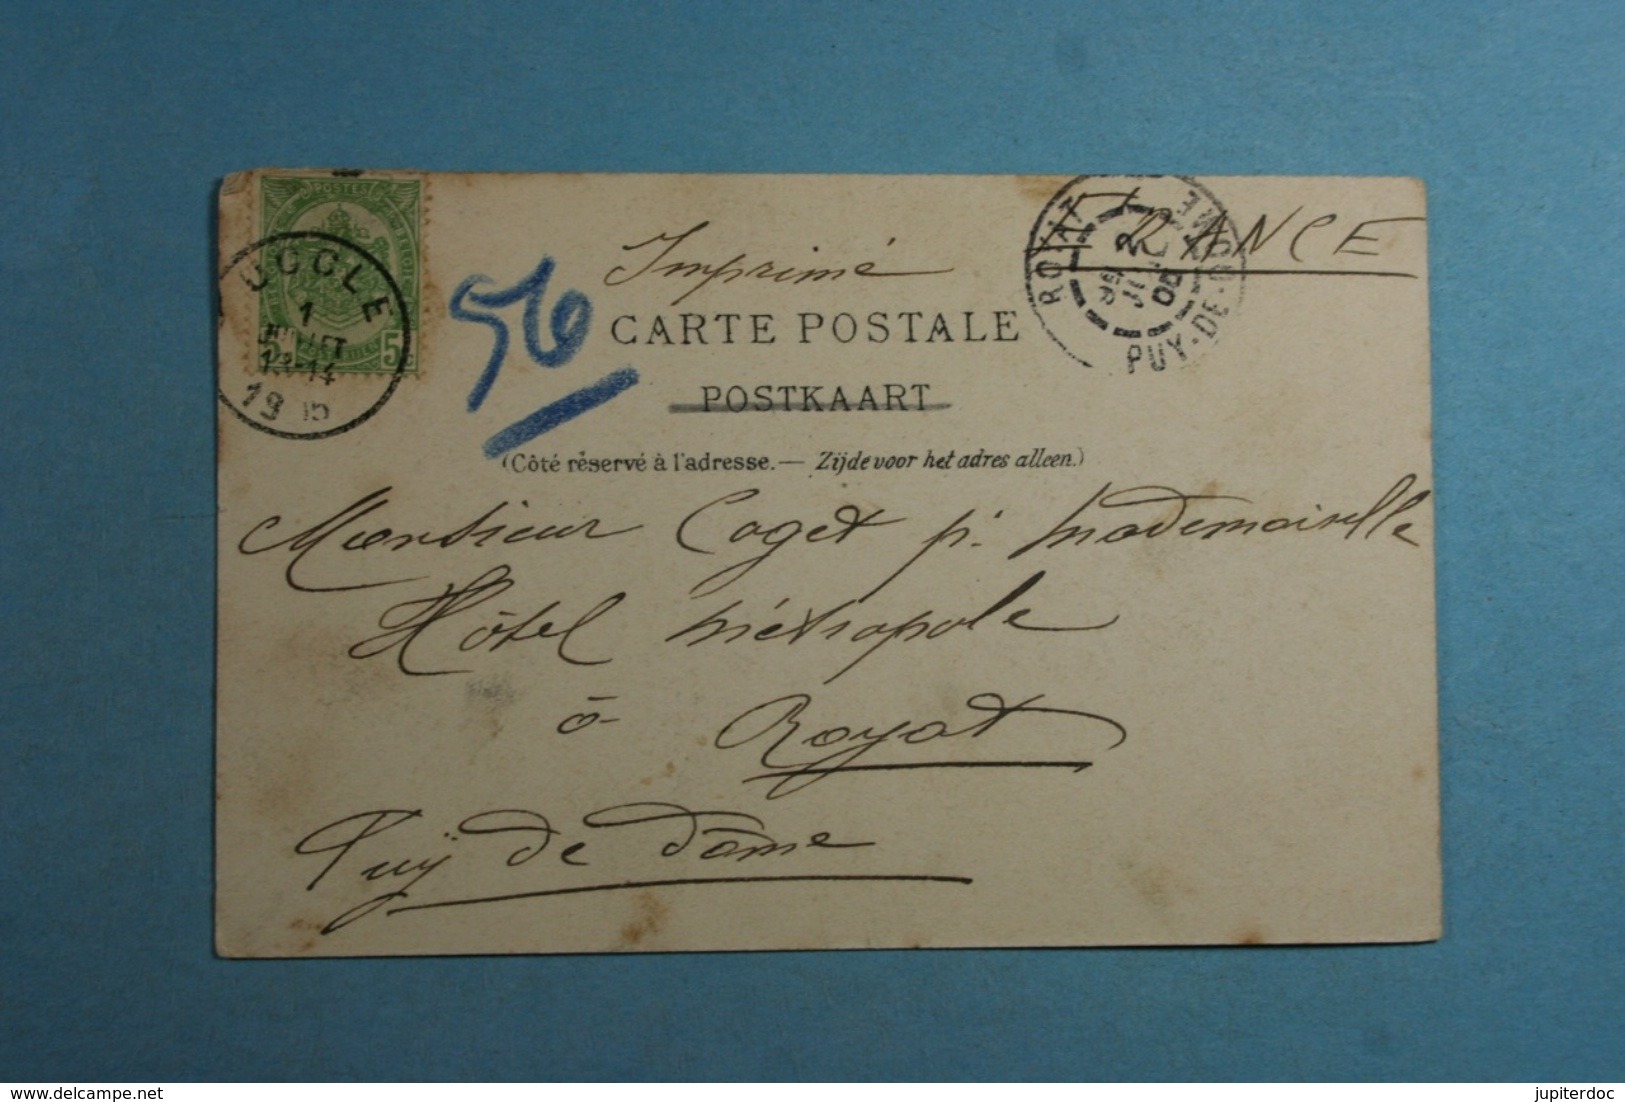 POSTES
UCCLE
1
JUILLET
13-14
19 05
5c
56
Imprimé
FRANCE
ROYAT
PUY-DE-DOME
2
CARTE POSTALE
POSTKAART
(Côté réservé à l'adresse. — Zijde voor het adres alleen.)
Monsieur Coget p. Mademoiselle
Hôtel métropole
à
Royat
Puÿ de Dôme
delcampe.net
jupiterdoc